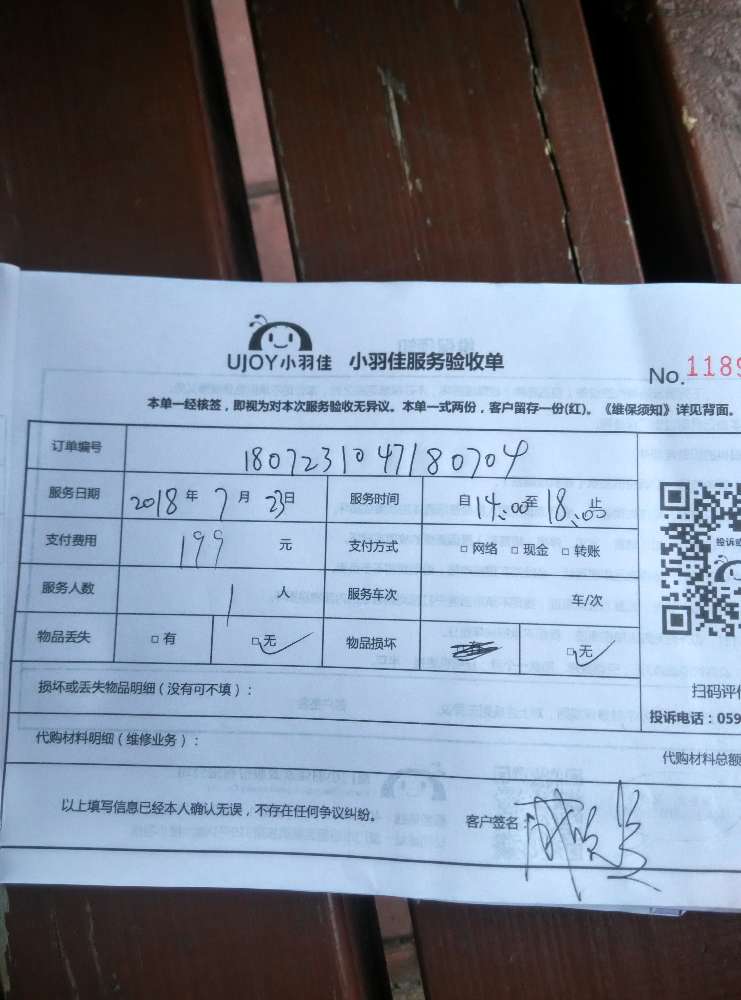 UJOY小羽佳 小羽佳服务验收单
No.1189
本单一经核签，即视为对本次服务验收无异议。本单一式两份，客户留存一份(红)。《维保须知》详见背面。
订单编号 1807231047180704
服务日期 2018年7月23日 服务时间 自14:00至18:00止
支付费用 199元 支付方式 □网络 □现金 □转账
服务人数 1人 服务车次 车/次
物品丢失 □有 □无 物品损坏 □无
损坏或丢失物品明细（没有可不填）：
扫码评价
投诉电话：059
代购材料明细（维修业务）：
代购材料总额
以上填写信息已经本人确认无误，不存在任何争议纠纷。
客户签名：
投诉或